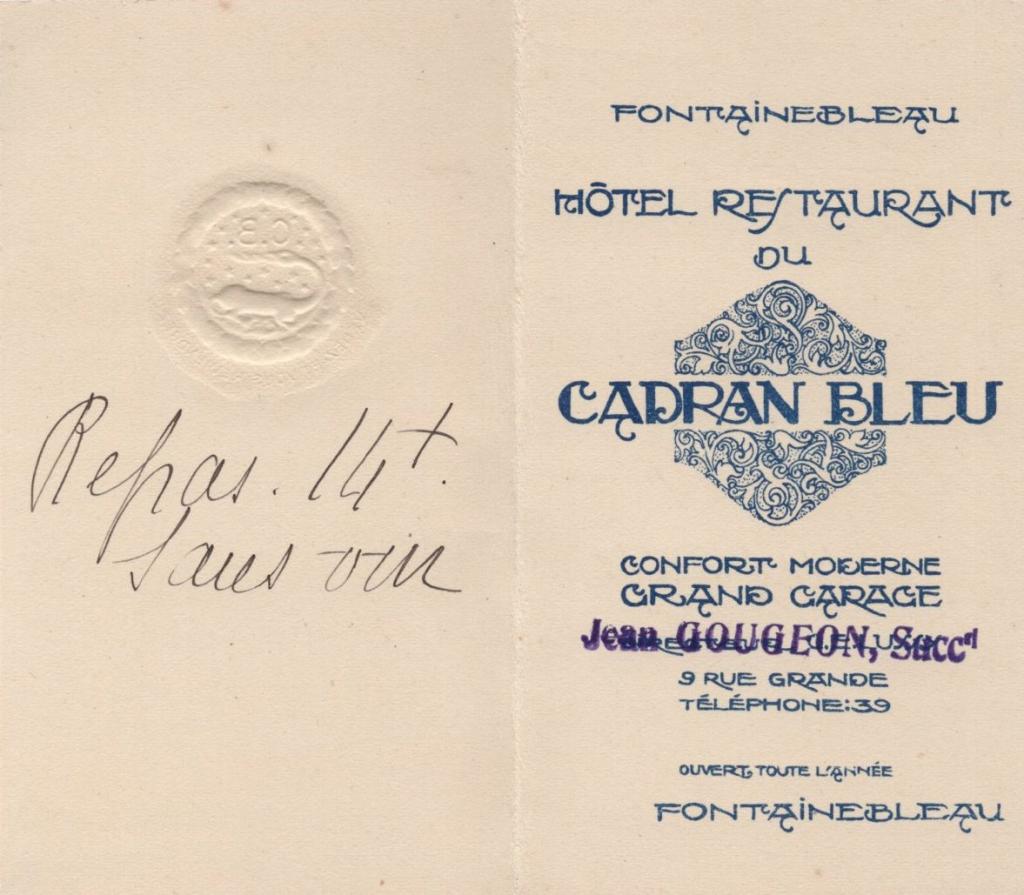 Repas. 14+.
Sans vin
FONTAINEBLEAU
HÔTEL RESTAURANT
DU
CADRAN BLEU
CONFORT MODERNE
GRAND GARAGE
Jean GOUGEON, Succʳ
9 RUE GRANDE
TÉLÉPHONE:39
OUVERT TOUTE L'ANNÉE
FONTAINEBLEAU